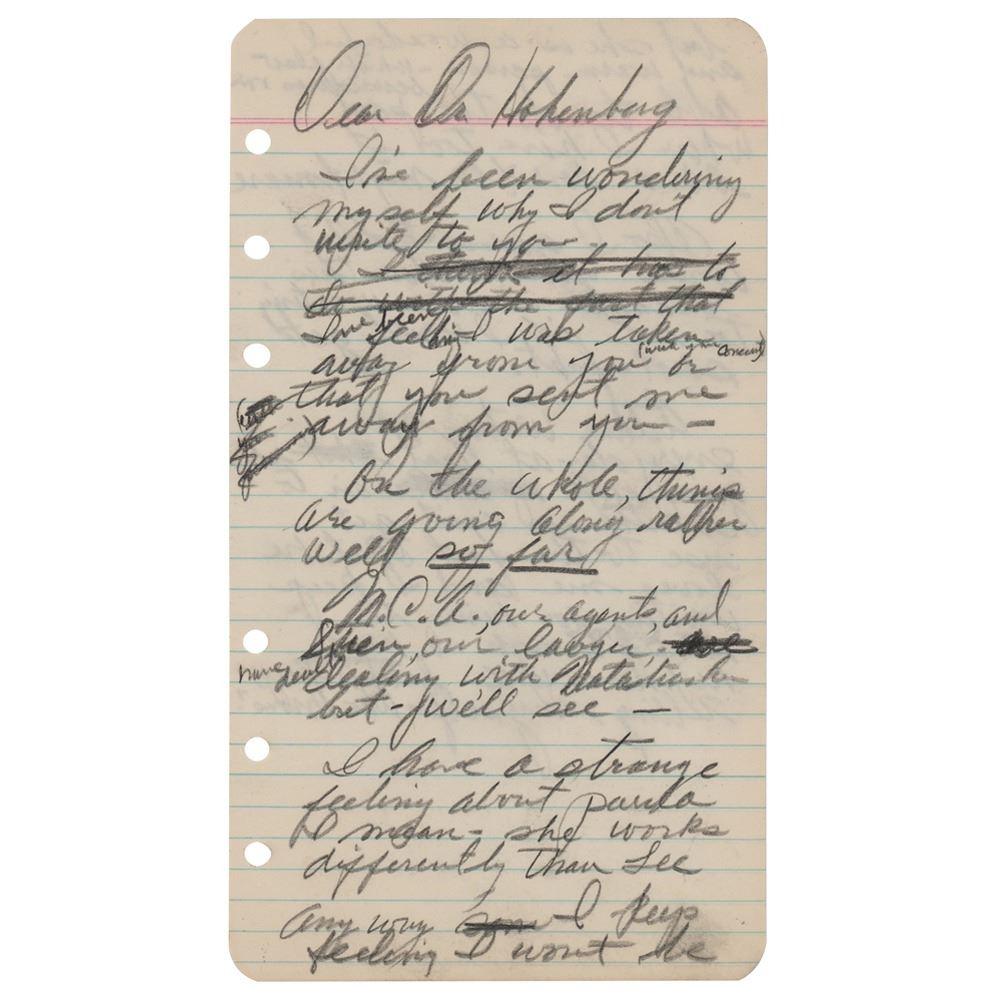 Dear Dr. Hohenberg
I've been wondering
myself why I don't
write to you
I think it has to
do with the fact that
I've been feeling I was taken
away from you (with your consent) or
that you sent me
away from you —
On the whole, things
are going along rather
well so far
M.C.A., our agents, and
Stein, our lawyer,
have been dealing with Natasha
but - we'll see —
I have a strange
feeling about paula
I mean - she works
differently than Lee
any way I keep
feeling I won't be